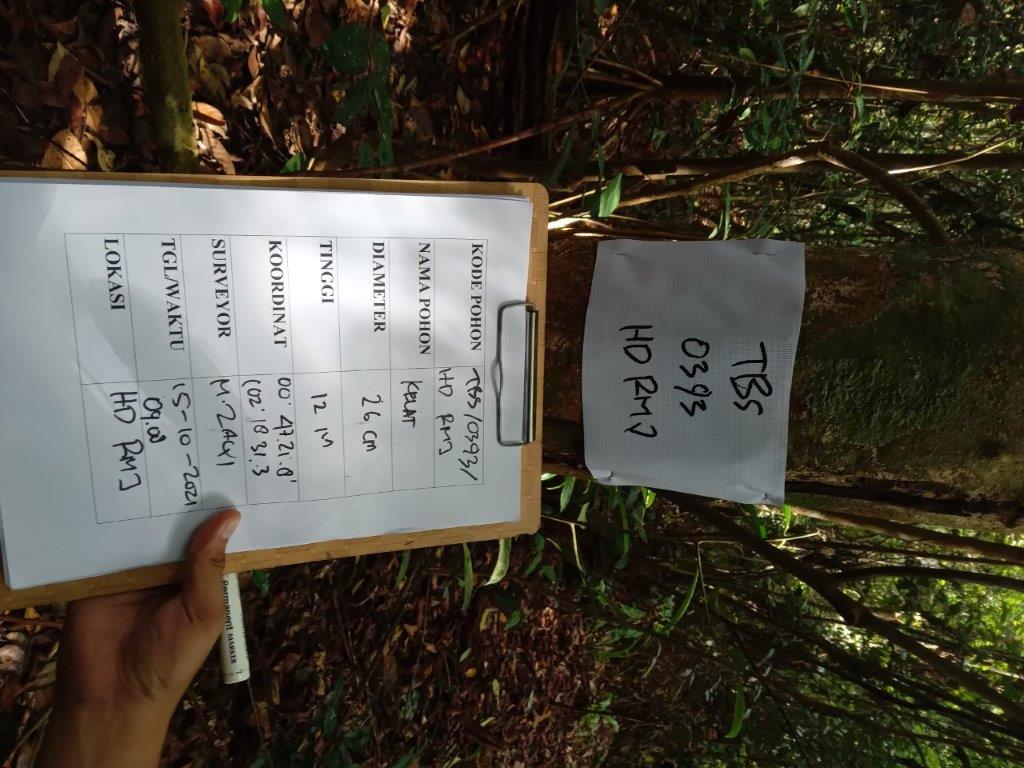 TBS
0393
HD RMJ
KODE POHON TBS/0393/
HD RMJ
NAMA POHON KELAT
DIAMETER 26 cm
TINGGI 12 M
KOORDINAT 00° 47.21.8'
102° 18 31.3
SURVEYOR M. ZAQI
TGL/WAKTU 15-10-2021
09.00
LOKASI HD RMJ
Permanent MARKER